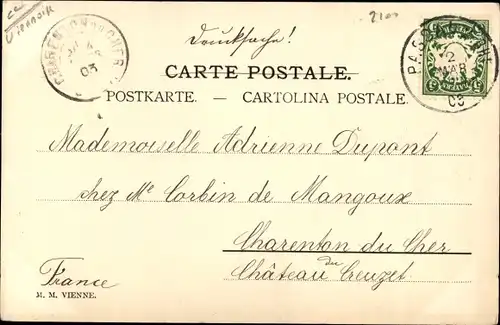 2100
Drucksache!
CHARENTON DU CHER
03
2
MAR
03
CARTE POSTALE.
POSTKARTE. — CARTOLINA POSTALE.
Mademoiselle Adrienne Dupont
chez Me Corbin de Mangoux
Charenton du Cher
Château du Creuzet
France
M. M. VIENNE.